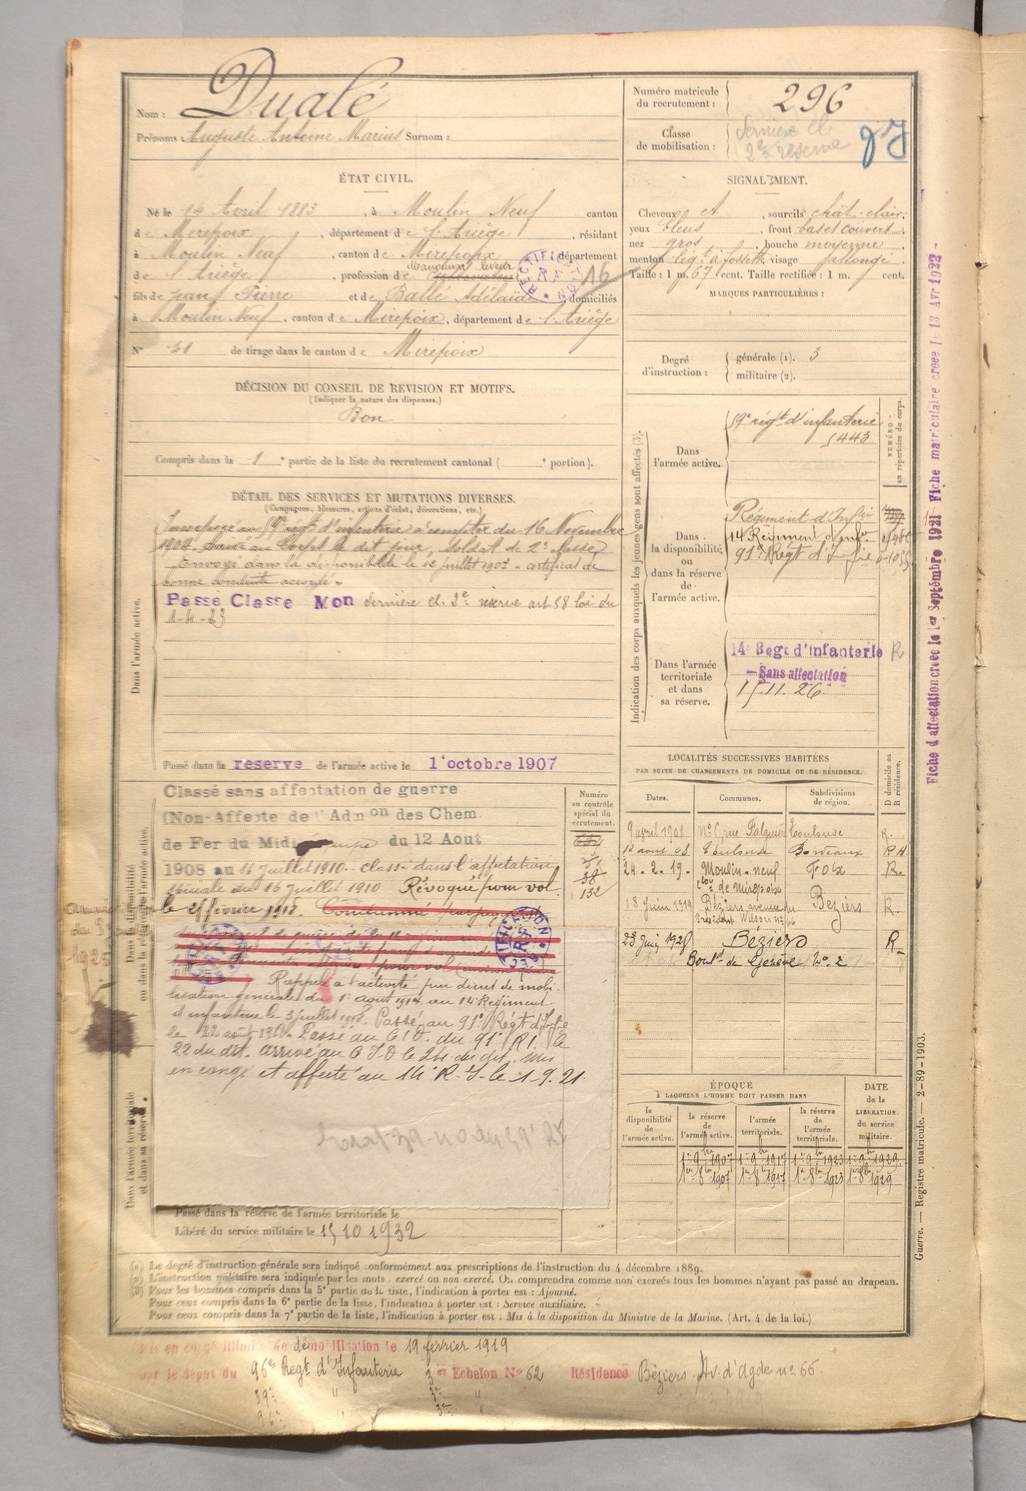 Nom : Dualé
Prénoms : Auguste Antoine Marius Surnom :
Numéro matricule du recrutement : 296
Classe de mobilisation : dernière cl 2e réserve
ÉTAT CIVIL.
Né le 14 Avril 1883, à Moulin Neuf canton
de Mirepoix, département de l'Ariège, résidant
à Moulin Neuf, canton de Mirepoix département
de l'Ariège, profession de 16
fils de Jean Pierre et de Ballé Adélaïde domiciliés
à Moulin Neuf, canton de Mirepoix, département de l'Ariège
N° 51 de tirage dans le canton de Mirepoix
SIGNALEMENT.
Cheveux ch, sourcils chât. clair.
yeux bleus, front bas et couvert,
nez gros, bouche moyenne,
menton visage allongé.
Taille : 1 m. 67 cent. Taille rectifiée : 1 m. cent.
MARQUES PARTICULIÈRES :
Degré d'instruction : générale (1). 3
militaire (2).
DÉCISION DU CONSEIL DE REVISION ET MOTIFS.
(Indiquer la nature des dispenses.)
Bon
Compris dans la 1e partie de la liste du recrutement cantonal ( e portion).
DÉTAIL DES SERVICES ET MUTATIONS DIVERSES.
(Campagnes, blessures, actions d'éclat, décorations, etc.)
Dans l'armée active.
Incorporé au 59e régt d'infanterie à compter du 16 Novembre
1904. Arrivé au Corps le dit jour, Soldat de 2e classe
Envoyé dans la disponibilité le 12 juillet 1907 - certificat de
bonne conduite accordé.
Passé Classe Mon dernière cl. 2e réserve art 58 loi du
1-4-23
Passé dans la réserve de l'armée active le 1 octobre 1907
Indication des corps auxquels les jeunes gens sont affectés (3).
NUMÉRO au répertoire du corps.
Dans l'armée active. 59e régt d'infanterie
5443
Dans la disponibilité ou dans la réserve de l'armée active.
Régiment d'Infie
14 Régiment d'inf.
91e Régt d'Infie
Dans l'armée territoriale et dans sa réserve.
14e Régt d'infanterie R
Sans affectation
15.11.26
Fiche d'affectation créée le 1er Septembre 1921 Fiche matriculaire créée le 13 Avr 1922
Dans la disponibilité ou dans la réserve de l'armée active.
Classé sans affectation de guerre
(Non-Affecté de l'Admon des Chem.
de Fer du Midi du 12 Aout
1908 au 16 juillet 1910. classé dans l'affectation
spéciale du 16 juillet 1910 Révoqué pour vol
le 25 février 1912.
Rappelé à l'activité par décret de mobi-
lisation générale du 1er août 1914 au 14 Régiment
d'infanterie le 3 juillet 1918. Passé au 91e Régt d'Infie
le 22 août 1918. Passé au C I D. du 91e R I. le
22 du dit. arrivé au C I D le 24 du dit. Mis
en congé et affecté au 14e R. I. le 1-9.21.
Numéro au contrôle spécial du recrutement.
38
132
Dans l'armée territoriale et dans sa réserve.
Passé dans la réserve de l'armée territoriale le
Libéré du service militaire le 15 10 1932
LOCALITÉS SUCCESSIVES HABITÉES
PAR SUITE DE CHANGEMENTS DE DOMICILE OU DE RÉSIDENCE.
Dates. Communes. Subdivisions de région. D domicile ou R résidence.
9 avril 1908 Toulouse R.
Toulouse Bordeaux
24-2-19. Moulin-neuf Foix R.
con de Mirepoix
18 Juin 1919 Béziers avenue du Président Wilson Béziers R.
23 Juin 1925 Béziers R
Boulevd de Genève No 2
ÉPOQUE
À LAQUELLE L'HOMME DOIT PASSER DANS
la disponibilité de l'armée active. la réserve de l'armée active. l'armée territoriale. la réserve de l'armée territoriale. DATE de la LIBÉRATION du service militaire.
1er 9bre 1907 1er 9bre 1917 1er 9bre 1923 1er 9bre 1929
1er 8bre 1907 1er 8bre 1917 1er 8bre 1923 1er 8bre 1929
Guerre. — Registre matricule. — 2-89-1903.
(1) Le degré d'instruction générale sera indiqué conformément aux prescriptions de l'instruction du 4 décembre 1889.
(2) L'instruction militaire sera indiquée par les mots : exercé ou non exercé. On comprendra comme non exercés tous les hommes n'ayant pas passé au drapeau.
(3) Pour les hommes compris dans la 5e partie de la liste, l'indication à porter est : Ajourné.
Pour ceux compris dans la 6e partie de la liste, l'indication à porter est : Service auxiliaire.
Pour ceux compris dans la 7e partie de la liste, l'indication à porter est : Mis à la disposition du Ministre de la Marine. (Art. 4 de la loi.)
Mis en congé illimité de démobilisation le 19 février 1919
par le dépôt du 96e Régt d'Infanterie 3e Echelon No 62 Résidence Béziers Av. d'Agde no 66